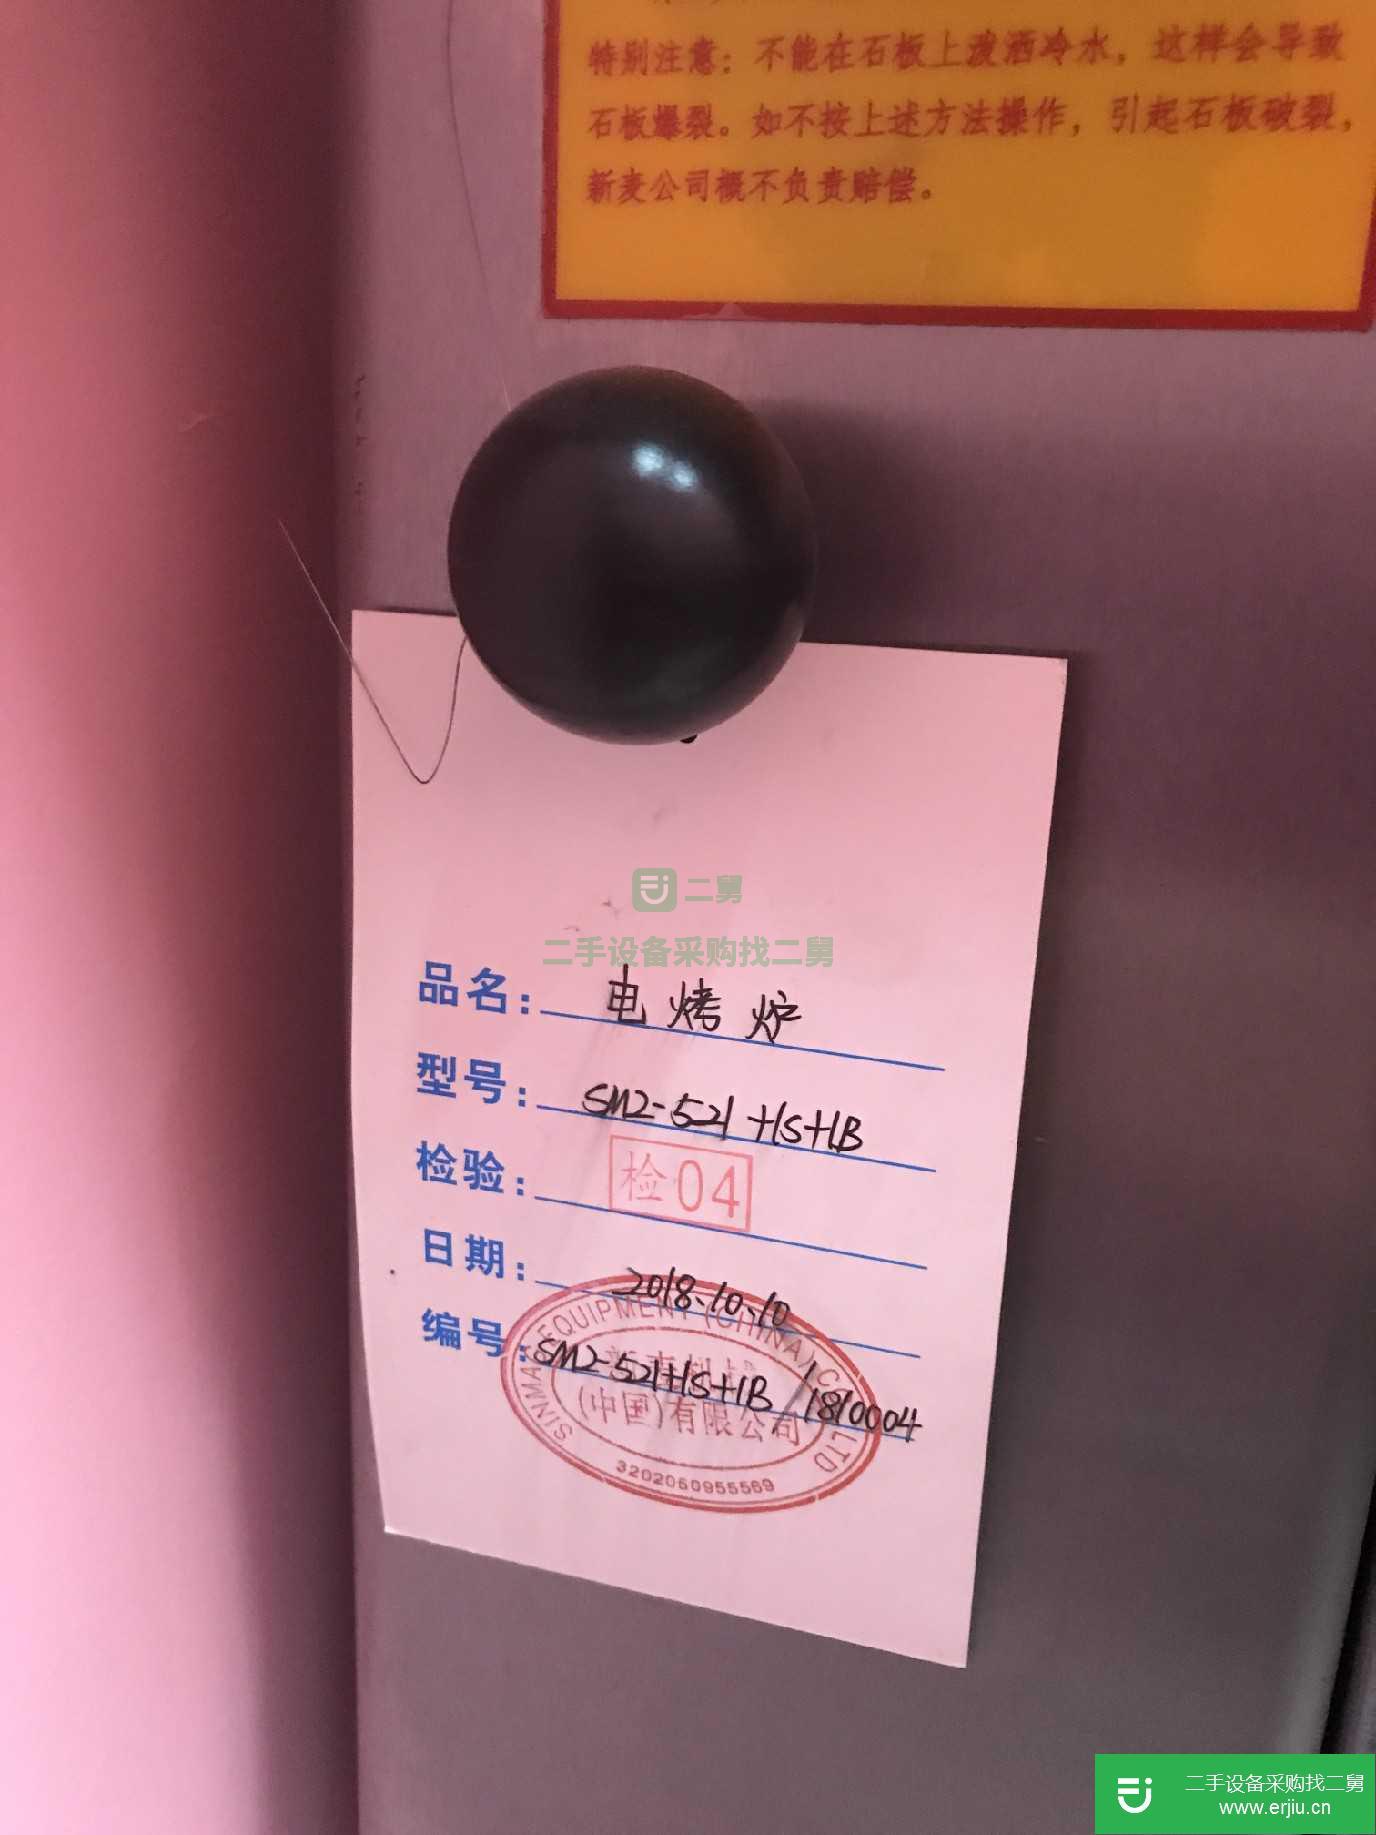 特别注意：不能在石板上泼洒冷水，这样会导致
石板爆裂。如不按上述方法操作，引起石板破裂，
新麦公司概不负责赔偿。
二舅
二手设备采购找二舅
品名：电烤炉
型号：SM2-521+1S+1B
检验：检04
日期：2018.10.10
编号：SM2-521+1S+1B/1810004
SINMAG EQUIPMENT (CHINA) CO., LTD
新麦机械
(中国)有限公司
3202060955569
二手设备采购找二舅
www.erjiu.cn